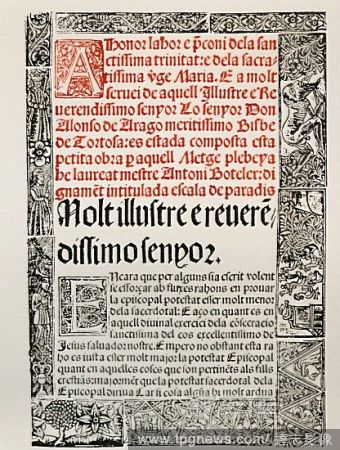 A honor labor e p̃coni dela san
ctissima trinitat: e dela sacra-
tissima ṽge Maria. E a molt
seruei de aquell Illustre e Re
uerendissimo senyor Lo senyor Don
Alonso de Arago meritissimo Bisbe
de Tortosa: es estada composta esta
petita obra ꝑ aquell Metge plebeya
he laureat mestre Antoni Boteler: di
gnamẽt intitulada escala de paradis
Molt illustre e reuerẽ-
dissimo senyor.
Encara que per alguns sia escrit volent
se esforçar ab fluxes rahons en prouar
la episcopal potestat esser molt menor
dela sacerdotal: E aço en quant es en
aquell diuinal exercici dela cõsecracio
sanctissima del cos excellentissimo de
Jesus saluador nostre. Empero no obstant esta ra
ho es iusta esser molt maior la potestat Episcopal
quant en aquelles coses que son pertinẽts als fills e
la potestat sacerdotal dela
Episcopal
www.tpgnews.com/